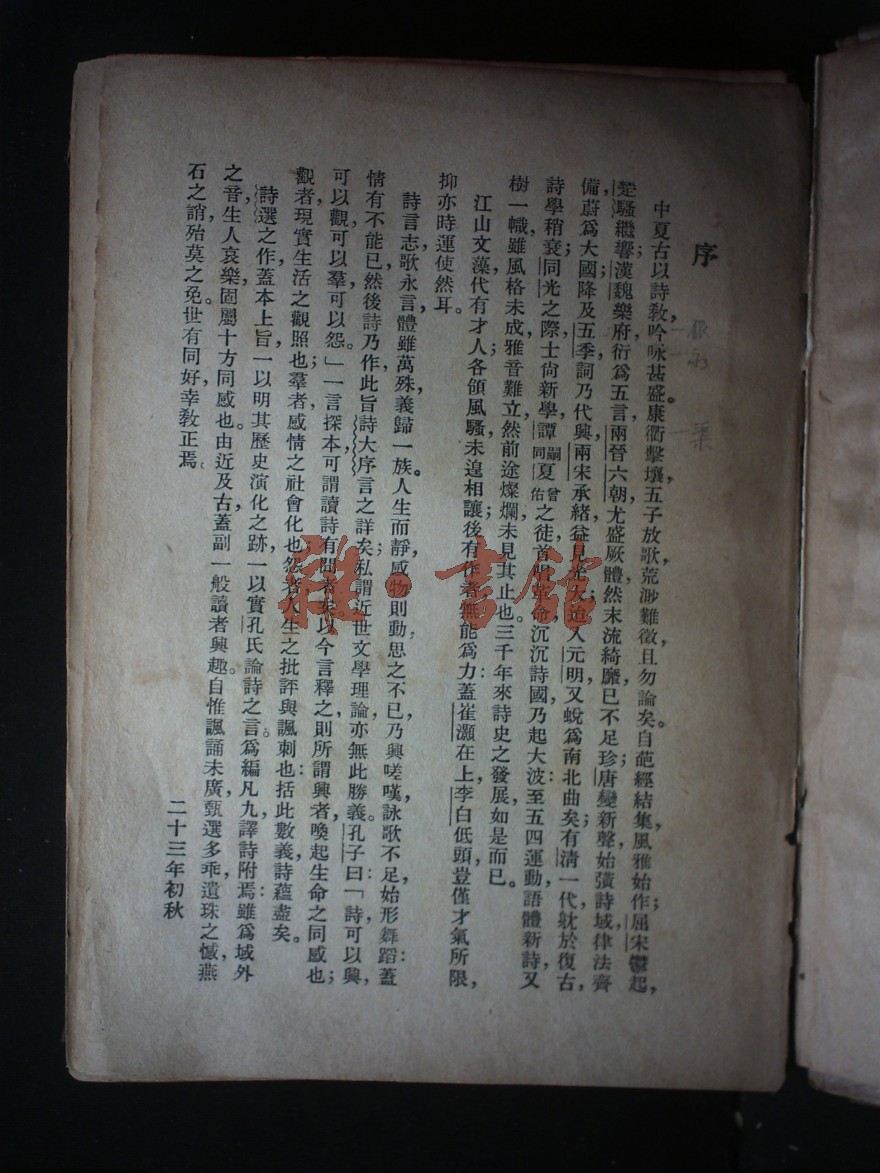 序
中夏古以詩敎，吟咏甚盛。康衢擊壤，五子放歌，荒渺難徵，且勿論矣。自葩經結集，風雅始作；屈宋鬱起，
楚騷繼響；漢魏樂府，衍爲五言；兩晉六朝，尤盛厥體，然末流綺靡，已不足珍；唐變新聲，始廣詩域，律法齊
備，蔚爲大國；降及五季，詞乃代興，兩宋承緒，益見光大；迨入元明，又蛻爲南北曲矣；有清一代，躭於復古，
詩學稍衰；同光之際，士尙新學，譚嗣同夏曾佑之徒，首唱革命，沉沉詩國，乃起大波；至五四運動，語體新詩，又
樹一幟，雖風格未成，雅音難立，然前途燦爛，未見其止也。三千年來詩史之發展，如是而已。
江山文藻，代有才人，各領風騷，未遑相讓；後有作者，無能爲力：蓋崔灝在上，李白低頭，豈僅才氣所限，
抑亦時運使然耳。
詩言志，歌永言，體雖萬殊，義歸一族。人生而靜，感物則動，思之不已，乃興嗟嘆，詠歌不足，始形舞蹈：蓋
情有不能已，然後詩乃作，此旨詩大序言之詳矣；私謂近世文學理論，亦無此勝義。孔子曰：「詩可以興，
可以觀，可以羣，可以怨。」一言探本，可謂讀詩有間者矣。以今言釋之，則所謂興者，喚起生命之同感也；
觀者，現實生活之觀照也；羣者，感情之社會化也；怨者，人生之批評與諷刺也：括此數義，詩蘊盡矣。
詩選之作，蓋本上旨，一以明其歷史演化之跡，一以實孔氏論詩之言。爲編凡九，譯詩附焉：雖爲域外
之音，生人哀樂，固屬十方同感也。由近及古，蓋副一般讀者興趣。自惟諷誦未廣，甄選多乖，遺珠之憾，燕
石之誚，殆莫之免。世有同好，幸敎正焉。
二十三年初秋
雅·書館